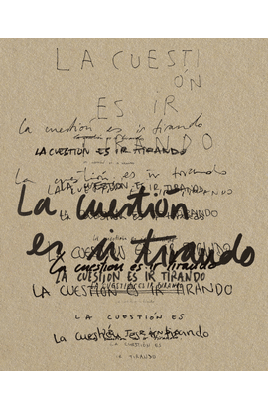 LA CUESTI
ÓN
ES IR
TIRANDO
La cuestión es ir tirando
LA CUESTIÓN ES IR TIRANDO
La cuestión es ir tirando
LA CUESTIÓN ES IR TIRANDO
La cuestión
es ir tirando
La cuestión es ir tirando
LA CUESTIÓN ES IR TIRANDO
LA CUESTIÓN ES IR TIRANDO
LA CUESTIÓN ES IR TIRANDO
LA CUESTIÓN ES
La cuestión es ir tirando
LA CUESTIÓN ES
IR TIRANDO